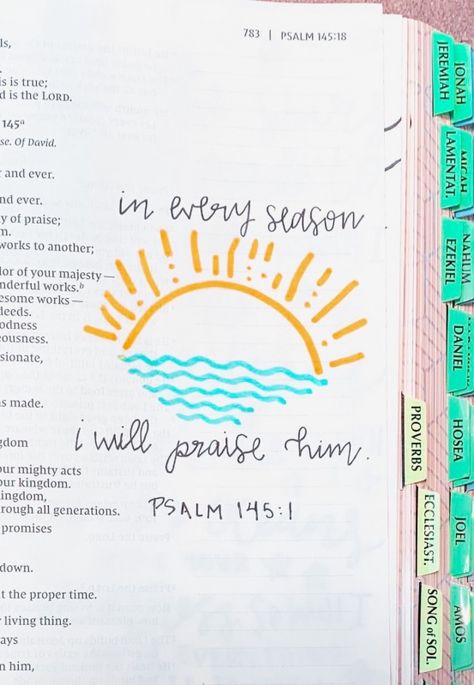 783 | PSALM 145:18
ls,
s is true;
d is the LORD.
145ᵃ
se. Of David.
r and ever.
nd ever.
y of praise;
m.
works to another;
lor of your majesty—
nderful works.ᵇ
esome works—
deeds.
odness
eousness.
sionate,
as made.
gdom
our mighty acts
our kingdom.
kingdom,
rough all generations.
promises
down.
t the proper time.
living thing.
ays
n him,
in every season
i will praise him.
PSALM 145:1
JEREMIAH
JONAH
LAMENTAT.
MICAH
EZEKIEL
NAHUM
DANIEL
PROVERBS
HOSEA
ECCLESIAST.
JOEL
SONG of SOL.
AMOS